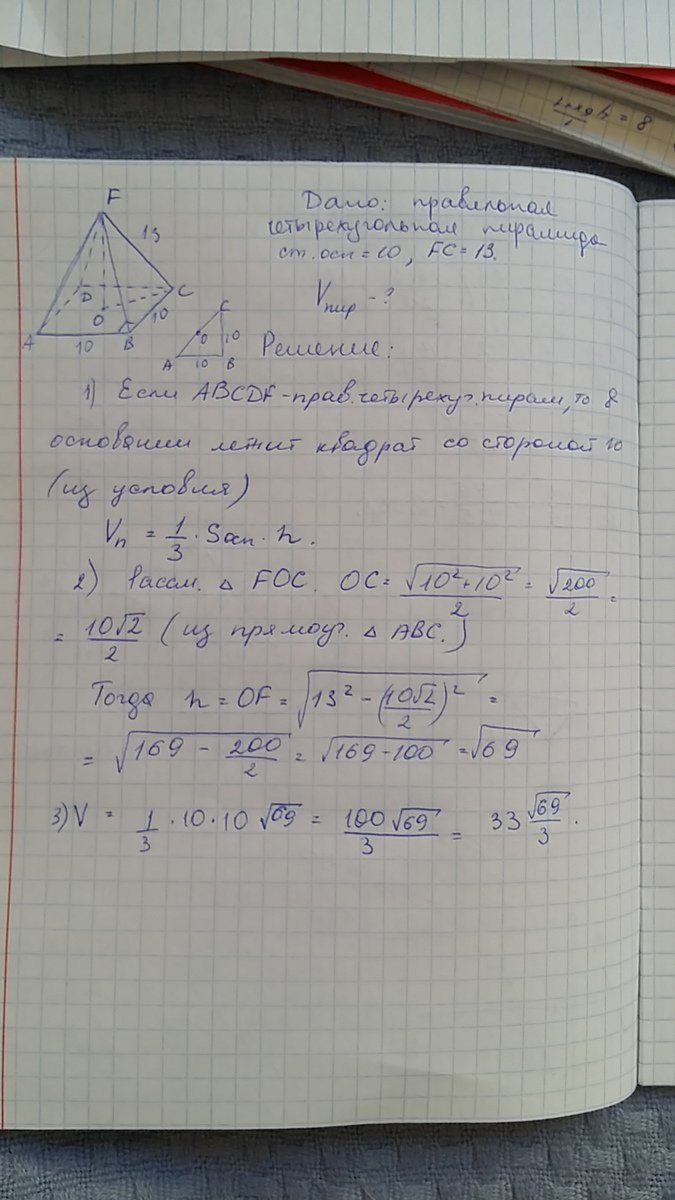 F
13
D
C
O
10
A
10
B
C
O
10
A
10
B
Дано: правильная
четырехугольная пирамида
ст. осн = 10, FC = 13.
Vпир - ?
Решение:
1) Если ABCDF - прав. четырехуг. пирам, то в
основании лежит квадрат со стороной 10
(из условия)
Vп = 1/3 · Sосн · h.
2) Рассм. △ FOC. OC = √(10² + 10²)/2 = √200/2 =
= 10√2/2 (из прямоуг. △ ABC.)
Тогда h = OF = √(13² - (10√2/2)²) =
= √(169 - 200/2) = √(169 - 100) = √69
3) V = 1/3 · 10 · 10 √69 = 100√69/3 = 33 √69/3.
= 8